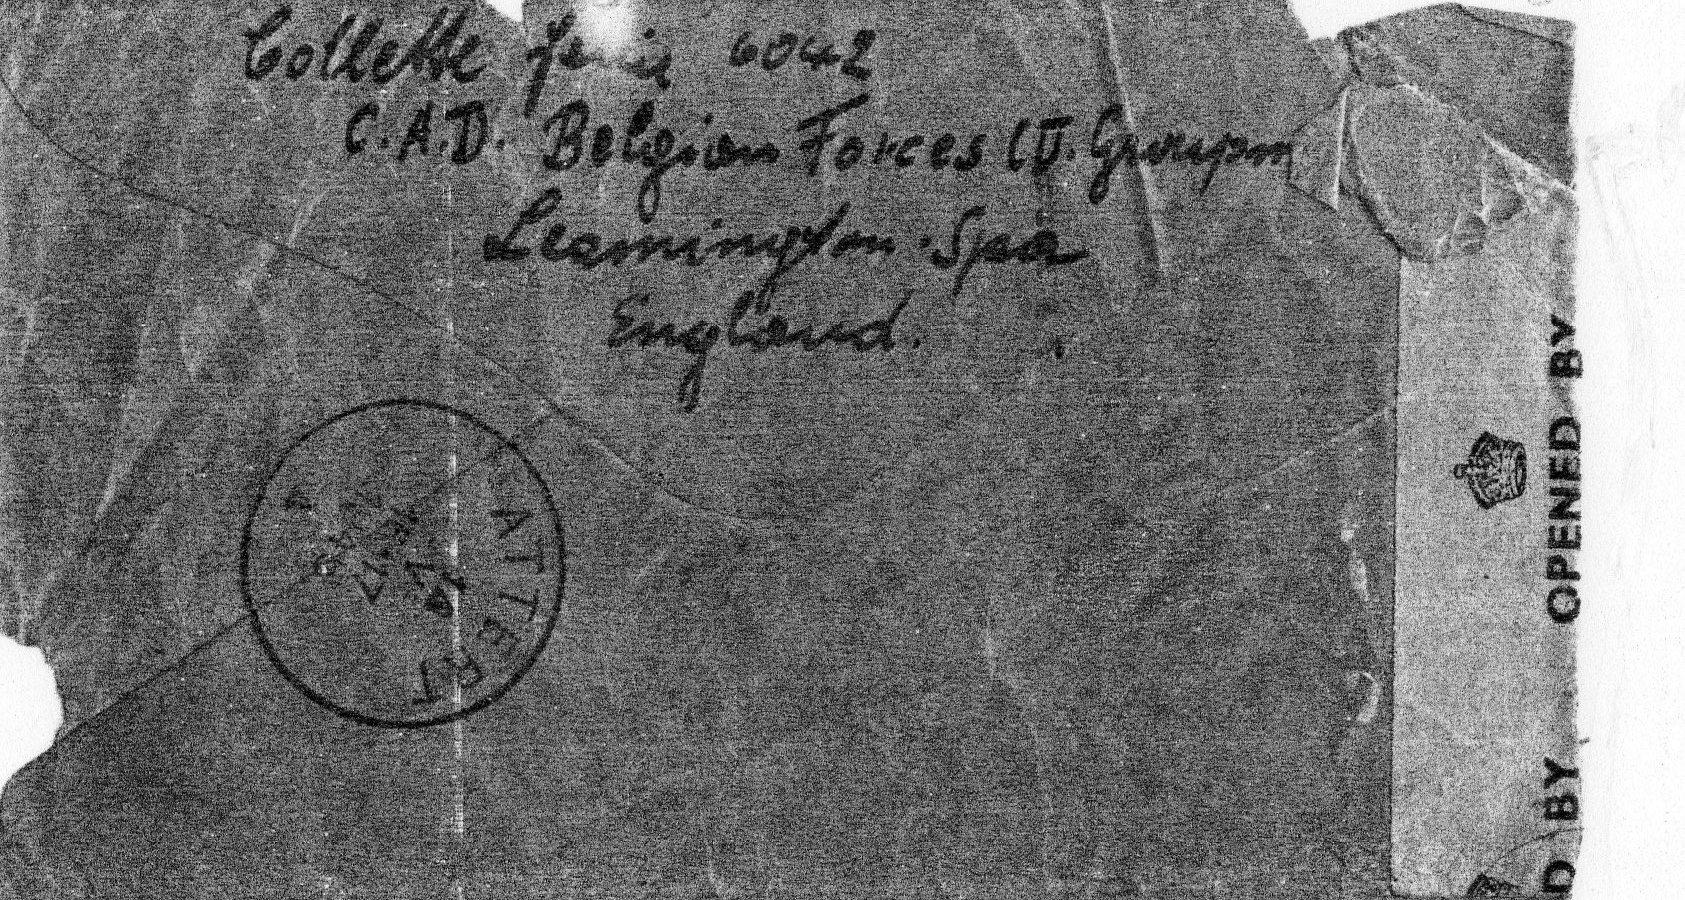 Collette 6042
C.A.D. Belgian Forces (II.
Leamington-Spa
England.
ATTERT
OPENED BY
D BY